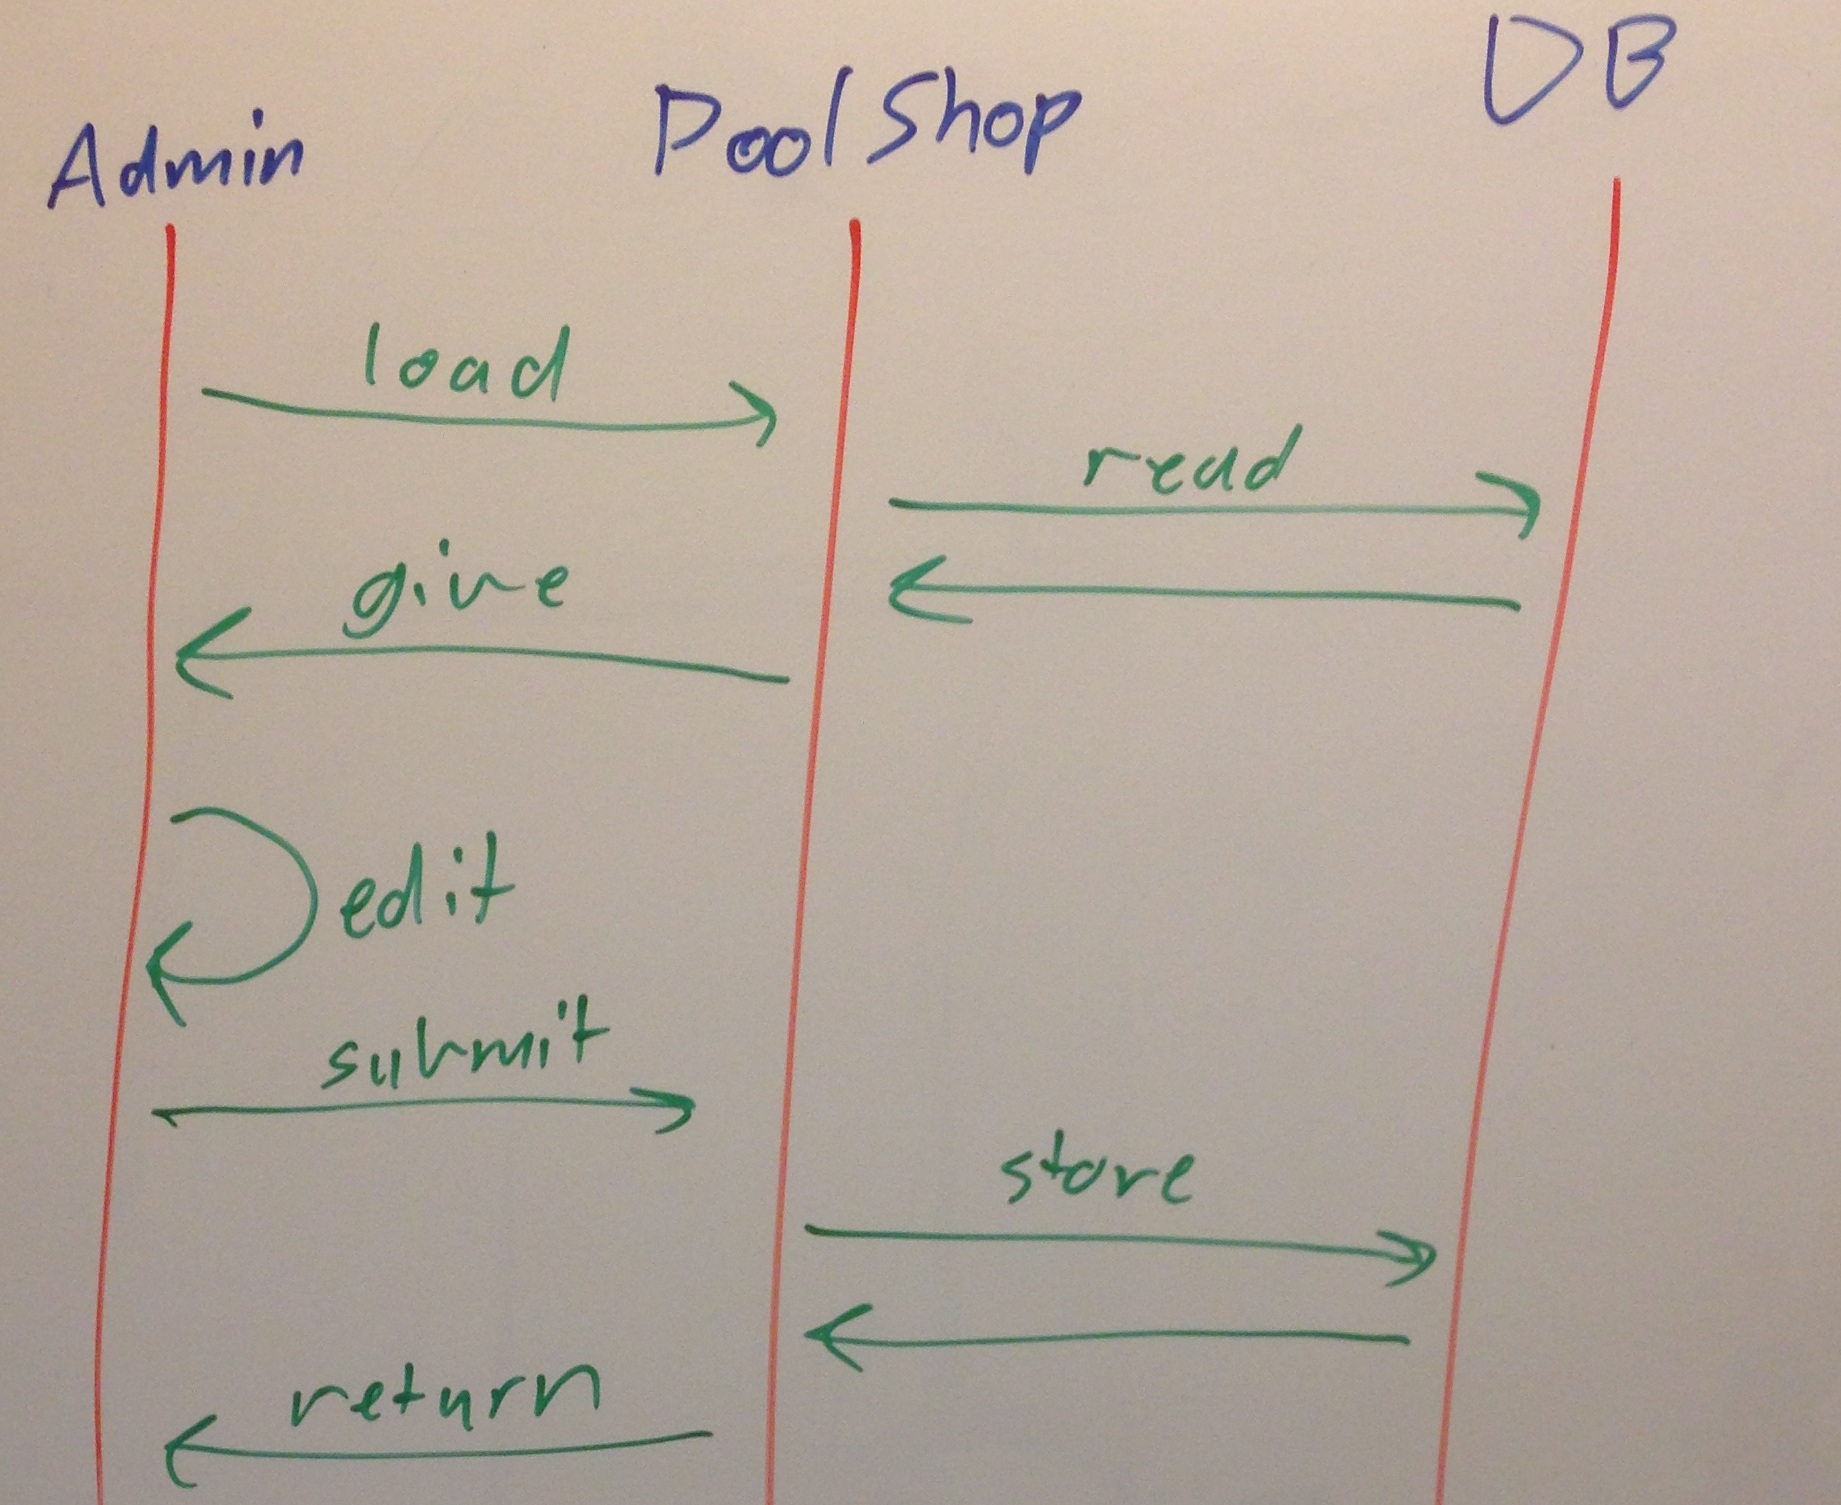 Admin
Pool Shop
DB
load
read
give
edit
submit
store
return